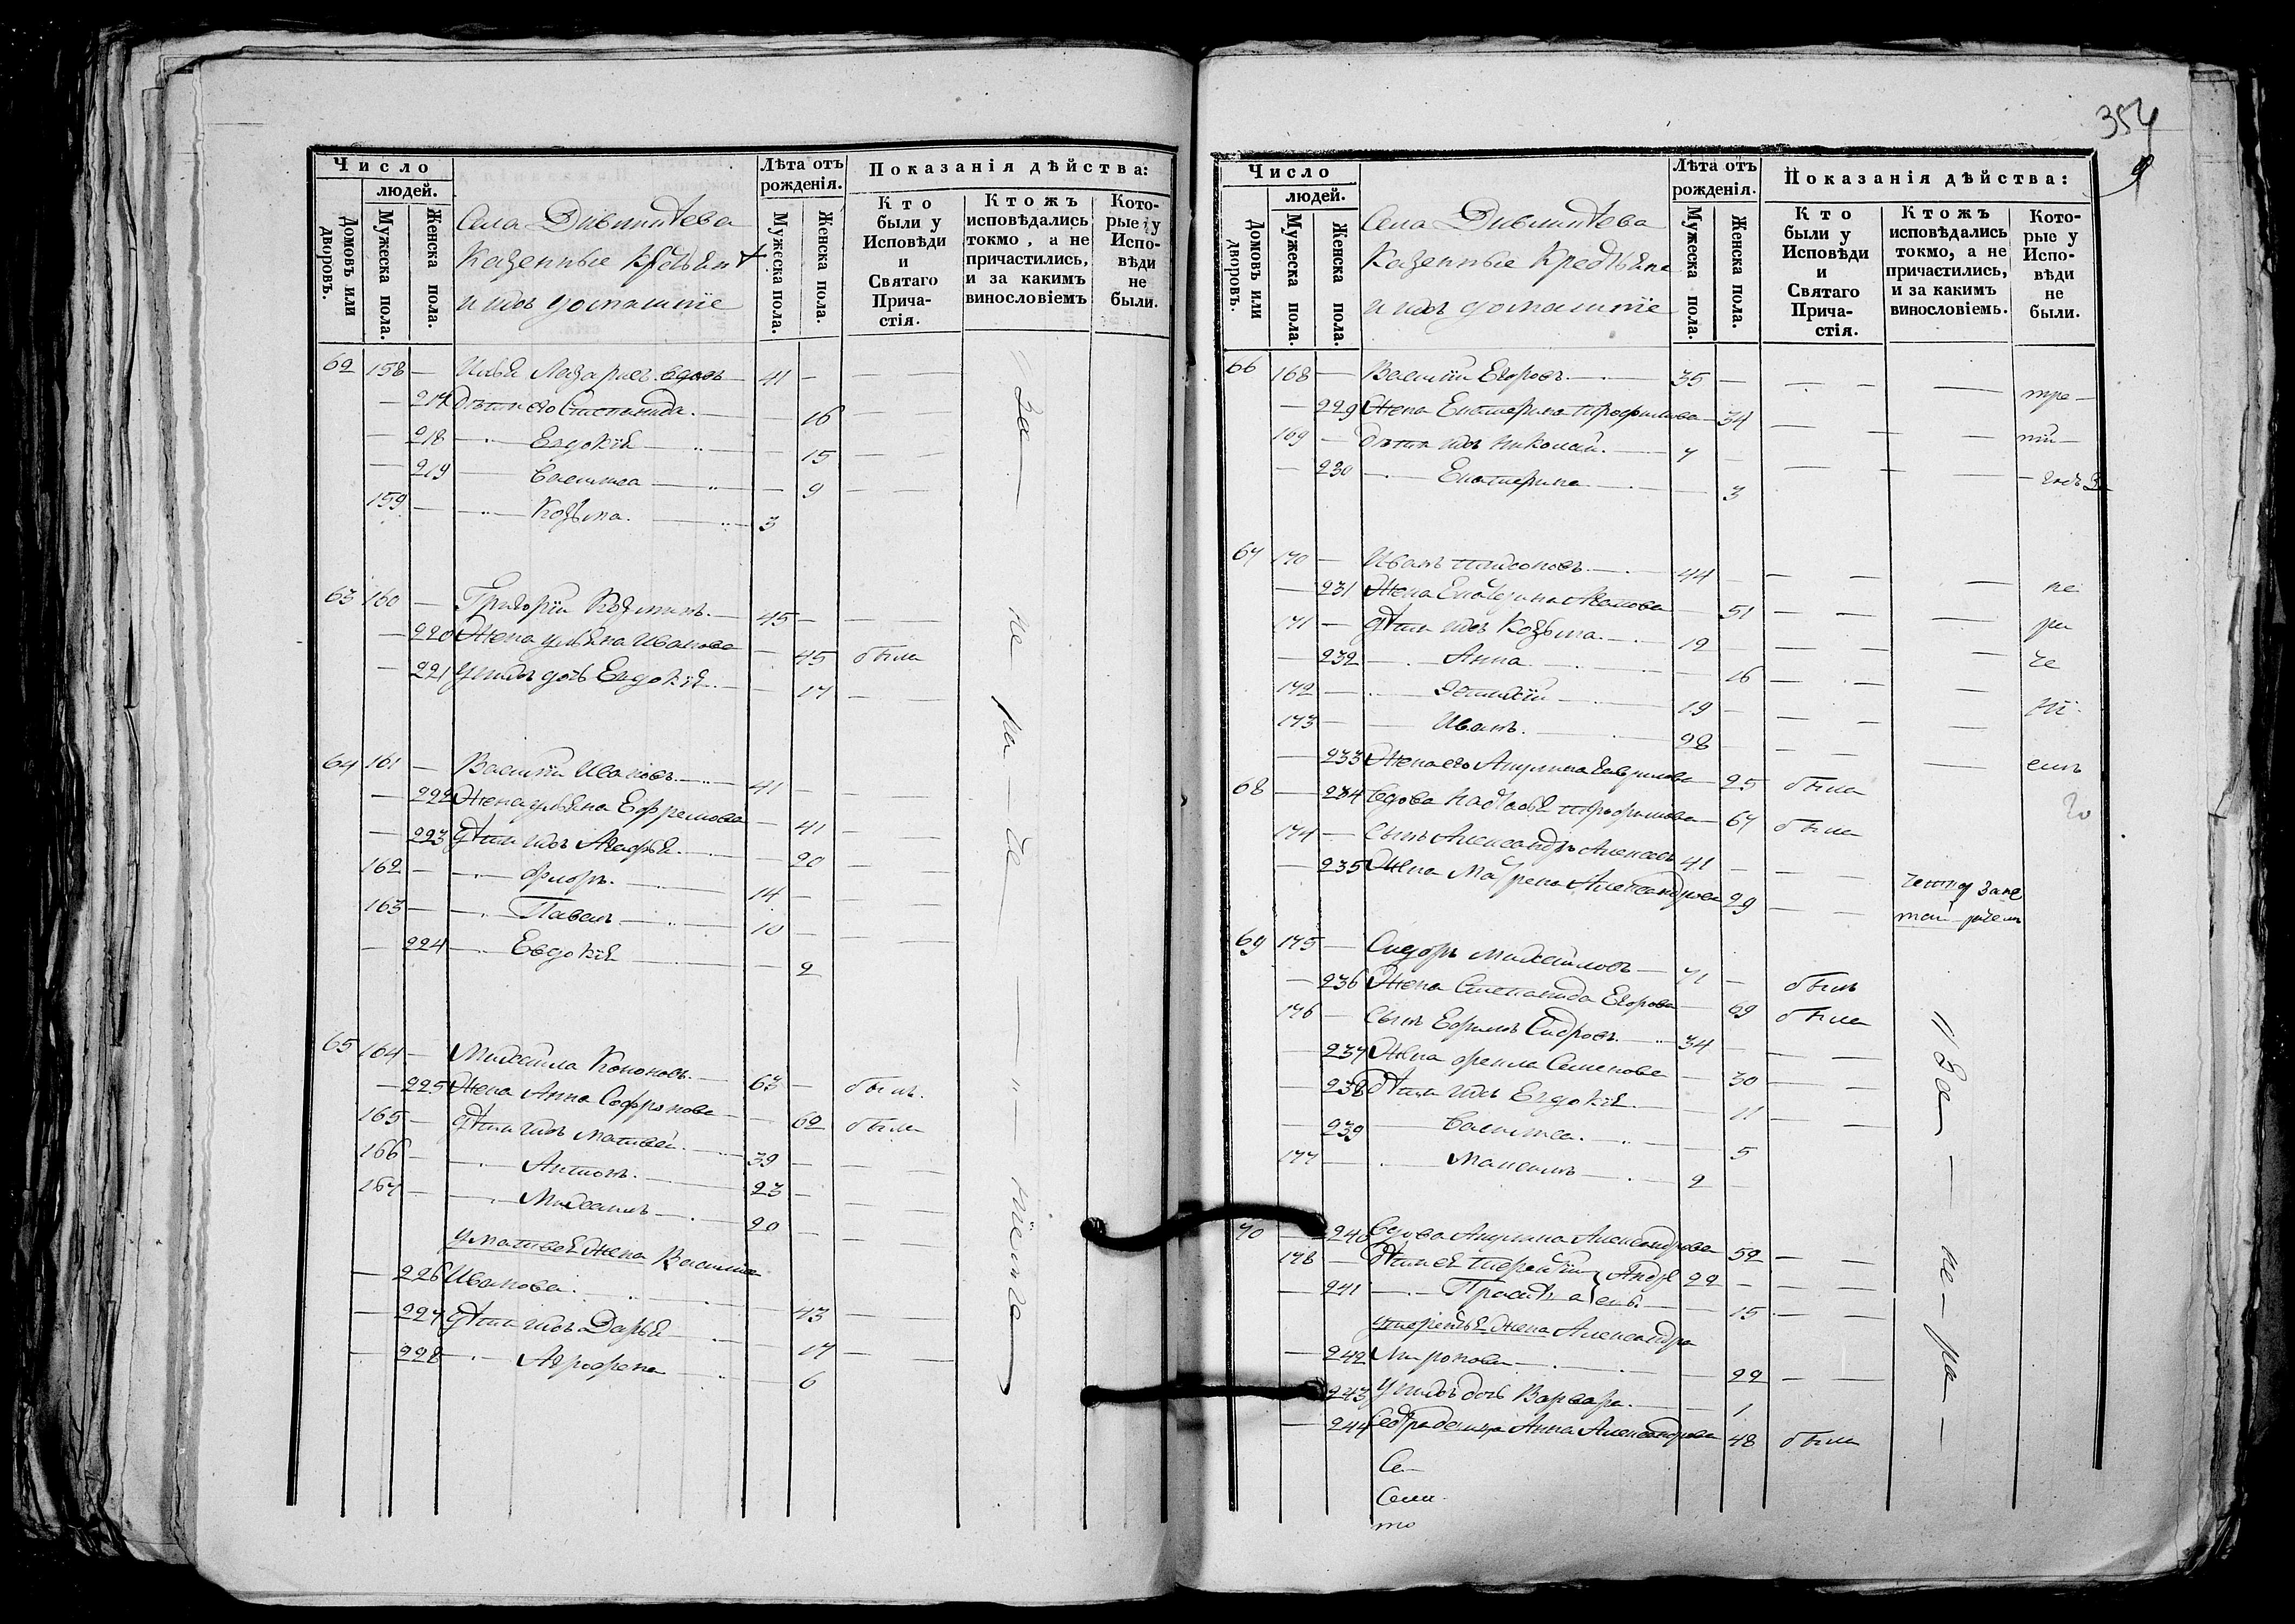 354
Число
людей.
Домовъ или дворовъ.
Мужеска пола.
Женска пола.
Села
Казенные Крестьяне
и ихъ домашніе
Лѣта отъ рожденія.
Мужеска пола.
Женска пола.
Показанія дѣйства:
Кто были у Исповѣди и Святаго Прича-стія.
Ктожъ исповѣдались токмо, а не причастились, и за какимъ винословіемъ
Кото-рые у Испо-вѣди не были.
62 158 — Илья Лазаревъ вдовъ 41 —
— 217 дѣти его Степанида — 16
— 218 — Евдокія — 15
— 219 — Васылиса — 9
159 — Козьма. 3
63 160 — Григорій Козминъ. 45 —
— 220 Жена Ульяна Иванова — 45 была
— 221 У нихъ дочь Евдокія. — 17
64 161 — Василій Ивановъ 41 —
— 222 Жена Ульяна Ефремова — 41
— 223 Дѣти ихъ Агафья. — 20
162 — Флоръ. 14 —
163 — Павелъ 10 —
— 224 — Евдокія — 2
65 164 — Михайла Кононовъ. 63 — былъ.
— 225 Жена Анна Софронова — 62 была
165 — дѣти ихъ Матвей. 39 —
166 — Антонъ. 23 —
167 — Михаилъ 20 —
У Матвея Жена Васылиса
— 226 Иванова. — 43
— 227 Дѣти ихъ Дарья — 17
— 228 — Агрофена — 6
за не ра де ніемъ
Число
людей.
Домовъ или дворовъ.
Мужеска пола.
Женска пола.
Села
Казенные Крестьяне
и ихъ домашніе
Лѣта отъ рожденія.
Мужеска пола.
Женска пола.
Показанія дѣйства:
Кто были у Исповѣди и Святаго Прича-стія.
Ктожъ исповѣдались токмо, а не причастились, и за какимъ винословіемъ.
Кото-рые у Испо-вѣди не были.
66 168 — Василій Егоровъ 35 — тре
— 229 Жена Екатерина Трофимова — 34 тій
169 — дѣти ихъ Николай. 7 — годъ
— 230 — Екатерина — 3
67 170 — Иванъ 44 — не
— 231 Жена — 51 ра
171 — дѣти ихъ Козьма. 12 — че
— 232 — Анна — 16
172 — 19 —
173 — Иванъ. 28 —
— 233 Жена его Акулина Гаврилова 25 была
68 — 234 Вдова Настасья Трофимова 67 была
174 — Сынъ Александръ Алексеевъ 41 —
— 235 Жена Матрена Александрова 29
69 175 — Сидоръ Михайловъ 71 — былъ
— 236 Жена Степанида Егорова 69 была
176 — Сынъ Ефимъ Сидровъ. 34 —
— 237 Жена Фекла Семенова — 30
— 238 Дѣти ихъ Евдокія — 11
— 239 — Васылиса. — 5
177 — Максимъ 2 —
70 — 240 Вдова Акулина Александрова 52
178 — Дѣти ея Терентій 22 —
— 241 — — 15
У Терентья Жена Александра
— 242 Миронова — 22
— 243 У нихъ дочь Варвара. — 1
— 244 Анна Александрова 48 была
за не ра
Се
Сем
то